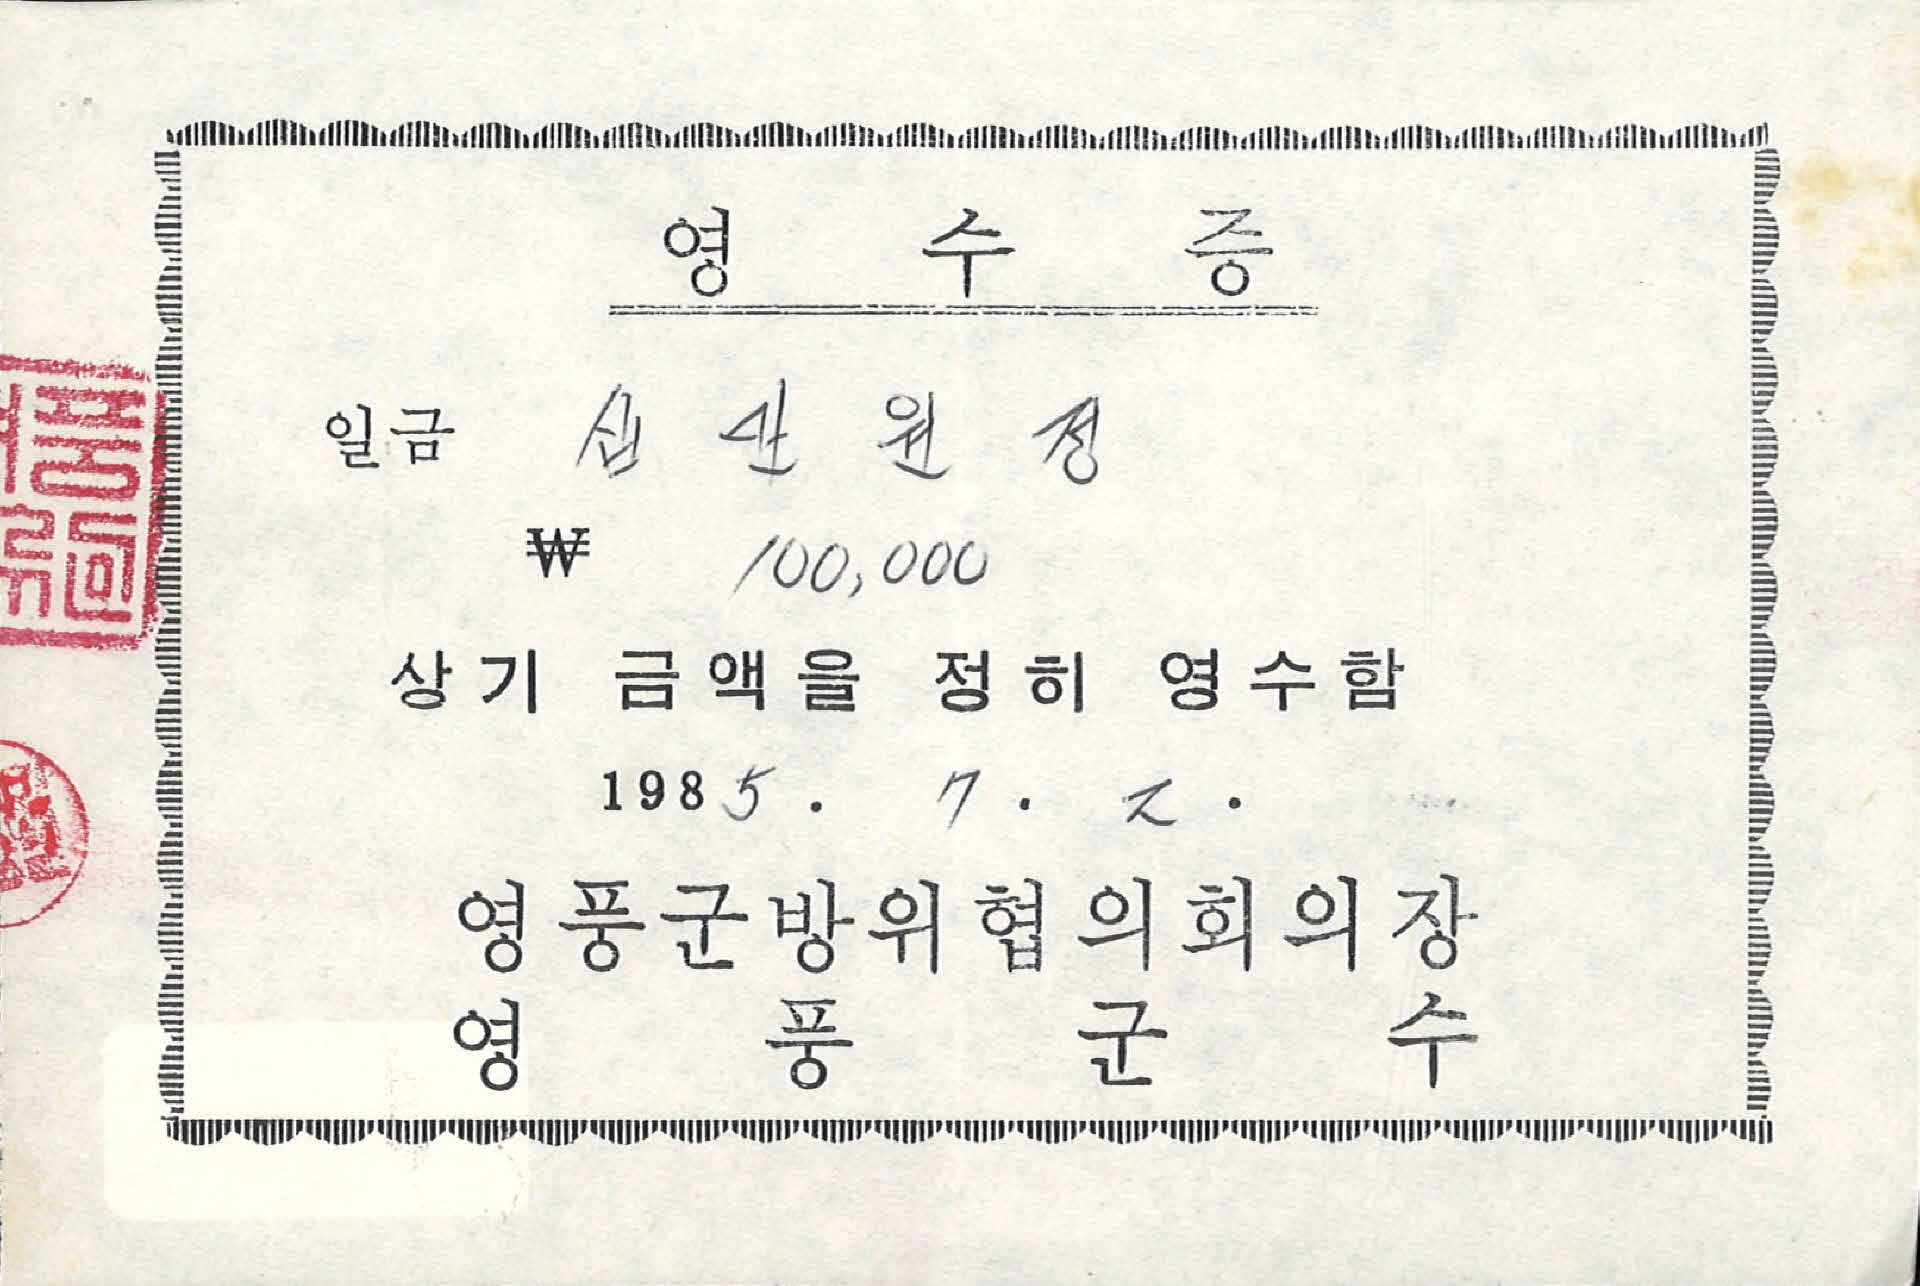 영 수 증
일금 십 만 원 정
₩ 100,000
상기 금액을 정히 영수함
1985. 7. 2.
영풍군방위협의회의장
영 풍 군 수